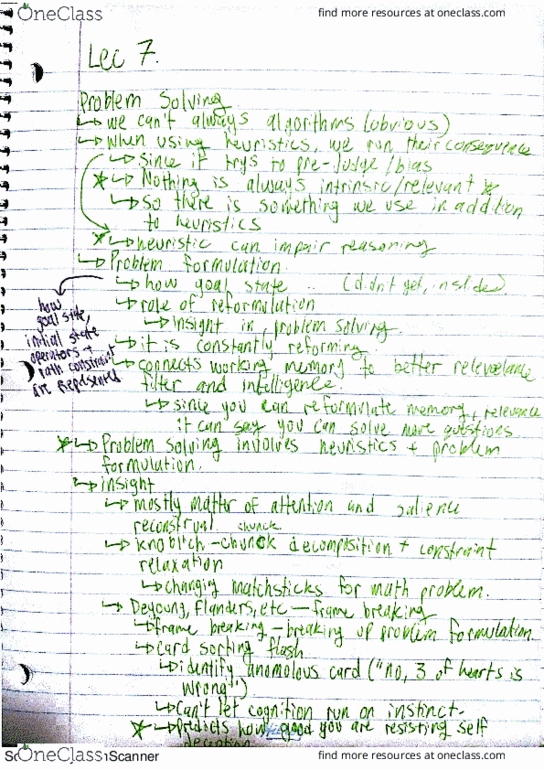 OneClass
find more resources at oneclass.com
Lec 7.
Problem Solving
↳ we can't always algorithms (obvious)
↳ when using heuristics, we run their consequence
↳ since it trys to pre-judge / bias
* ↳ Nothing is always intrinsic/relevant *
↳ so there is something we use in addition
to heuristics
* ↳ heuristic can impair reasoning
↳ Problem formulation
↳ how goal state .. (didn't get, in slides)
how
goal state,
initial state
operators +
path constraint
are represented
↳ role of reformulation
↳ Insight in problem solving.
↳ it is constantly reforming
↳ connects working memory to better relevance
filter and intelligence.
↳ since you can reformulate memory + relevance
it can say you can solve more questions.
* ↳ Problem solving involves heuristics + problem
formulation.
↳ insight
↳ mostly matter of attention and salience
reconstrual chunck
↳ knoblich - chunck decomposition + constraint
relaxation
↳ changing matchsticks for math problem.
↳ Deyoung, Flanders, etc — frame breaking
↳ frame breaking - breaking up problem formulation.
↳ card sorting flash
↳ identify anomolous card ("no, 3 of hearts is
wrong")
↳ can't let cognition run on instinct.
* ↳ predicts how good you are resisting self
deception
OneClass
Scanner
find more resources at oneclass.com